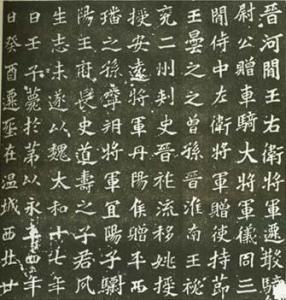 晉河間王右衛將軍遷散騎
尉公贈車騎大將軍儀同三
間侍中左衛將軍贈使持節
王曇之之曾孫晉淮南王祕
兗二州刺史晉祚流移姚授
授安遠將軍丹陽侯贈平西
璠之孫寧朔將軍宜陽子驎
陽王府長史道壽之子君夙
生志未遂以魏太和十七年
日壬子薨於第以永四年
日癸酉遷葬在溫城西北廿